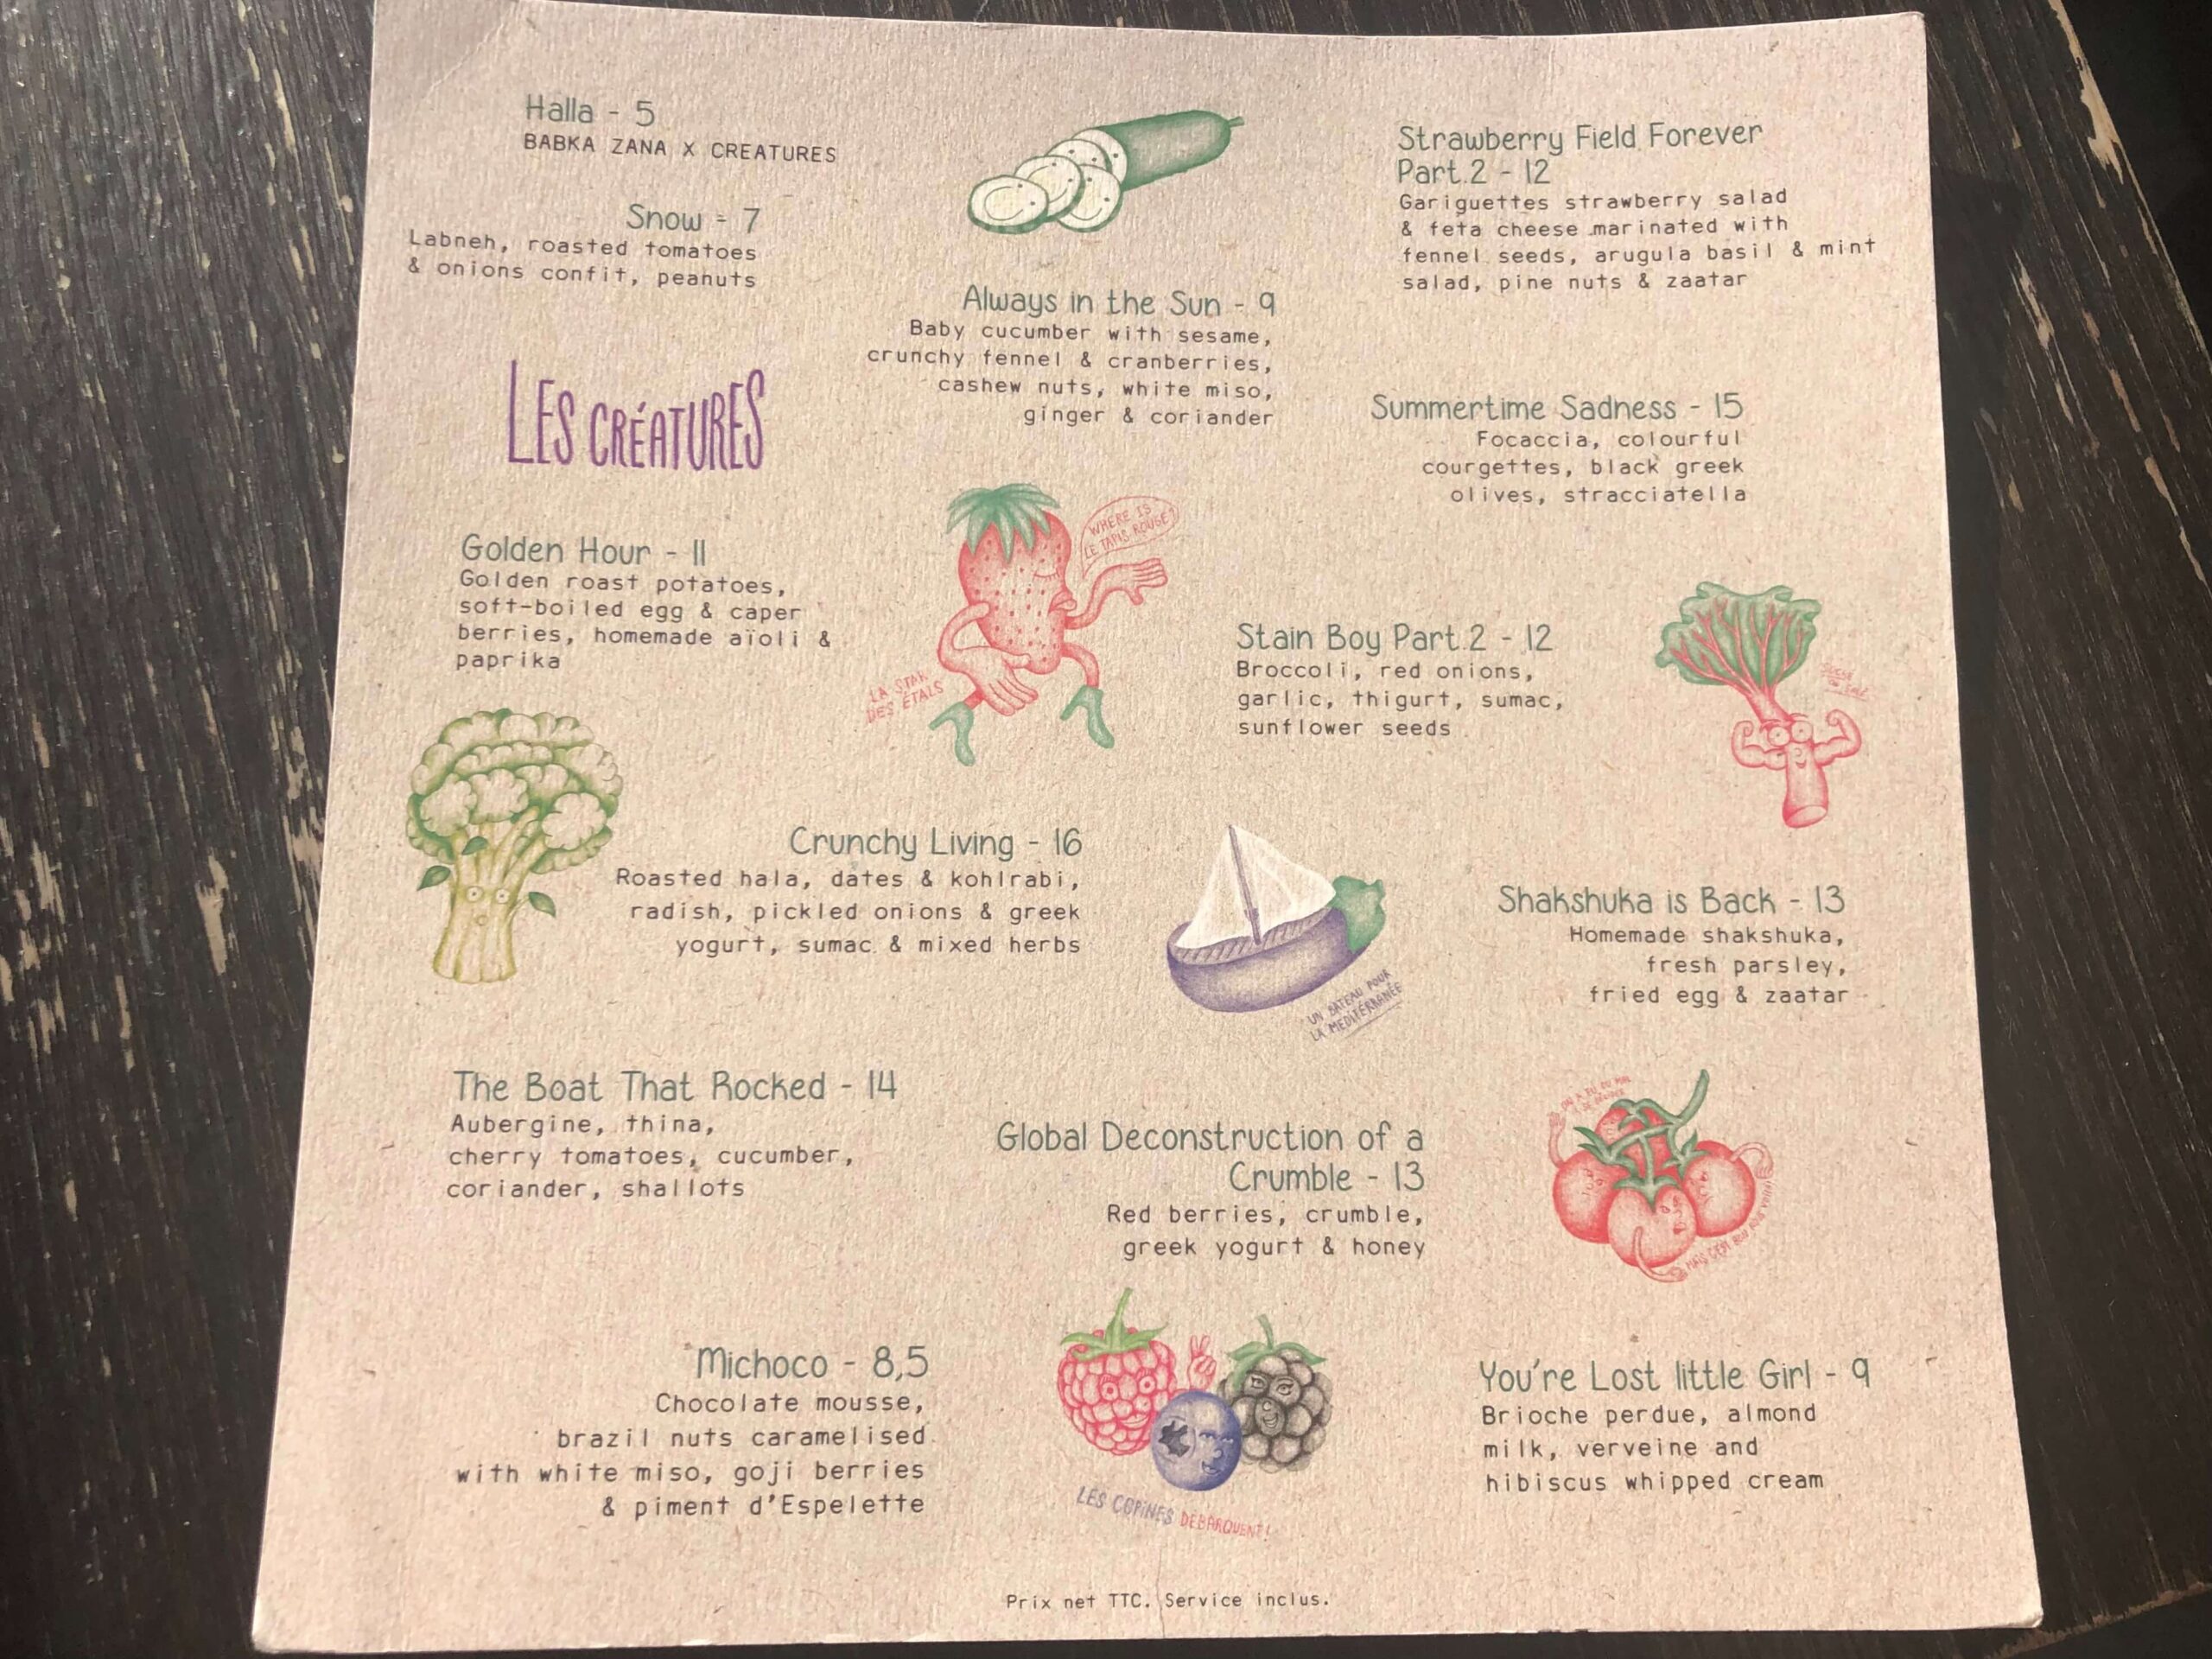 Halla - 5
BABKA ZANA X CREATURES
Snow - 7
Labneh, roasted tomatoes
& onions confit, peanuts
LES CRÉATURES
Golden Hour - 11
Golden roast potatoes,
soft-boiled egg & caper
berries, homemade aïoli &
paprika
Always in the Sun - 9
Baby cucumber with sesame,
crunchy fennel & cranberries,
cashew nuts, white miso,
ginger & coriander
Strawberry Field Forever
Part.2 - 12
Gariguettes strawberry salad
& feta cheese marinated with
fennel seeds, arugula basil & mint
salad, pine nuts & zaatar
Summertime Sadness - 15
Focaccia, colourful
courgettes, black greek
olives, stracciatella
WHERE IS
LE TAPIS ROUGE?
LA STAR
DES ÉTALS
Stain Boy Part.2 - 12
Broccoli, red onions,
garlic, thigurt, sumac,
sunflower seeds
Crunchy Living - 16
Roasted hala, dates & kohlrabi,
radish, pickled onions & greek
yogurt, sumac & mixed herbs
UN BATEAU POUR
LA MEDITÉRRANÉE
Shakshuka is Back - 13
Homemade shakshuka,
fresh parsley,
fried egg & zaatar
The Boat That Rocked - 14
Aubergine, thina,
cherry tomatoes, cucumber,
coriander, shallots
Global Deconstruction of a
Crumble - 13
Red berries, crumble,
greek yogurt & honey
ON A EU DU MAL
MAIS C'EST BON
Michoco - 8,5
Chocolate mousse,
brazil nuts caramelised
with white miso, goji berries
& piment d'Espelette
LES COPINES DEBARQUENT!
You're Lost little Girl - 9
Brioche perdue, almond
milk, verveine and
hibiscus whipped cream
Prix net TTC. Service inclus.